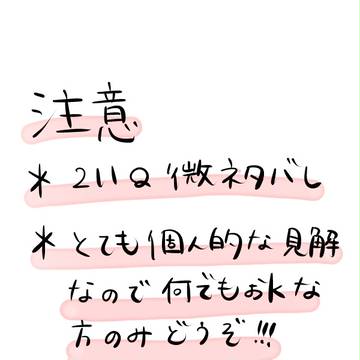 注意
* 211Q 微ネタバレ
* とても個人的な見解
なので何でもおkな
方のみどうぞ!!!